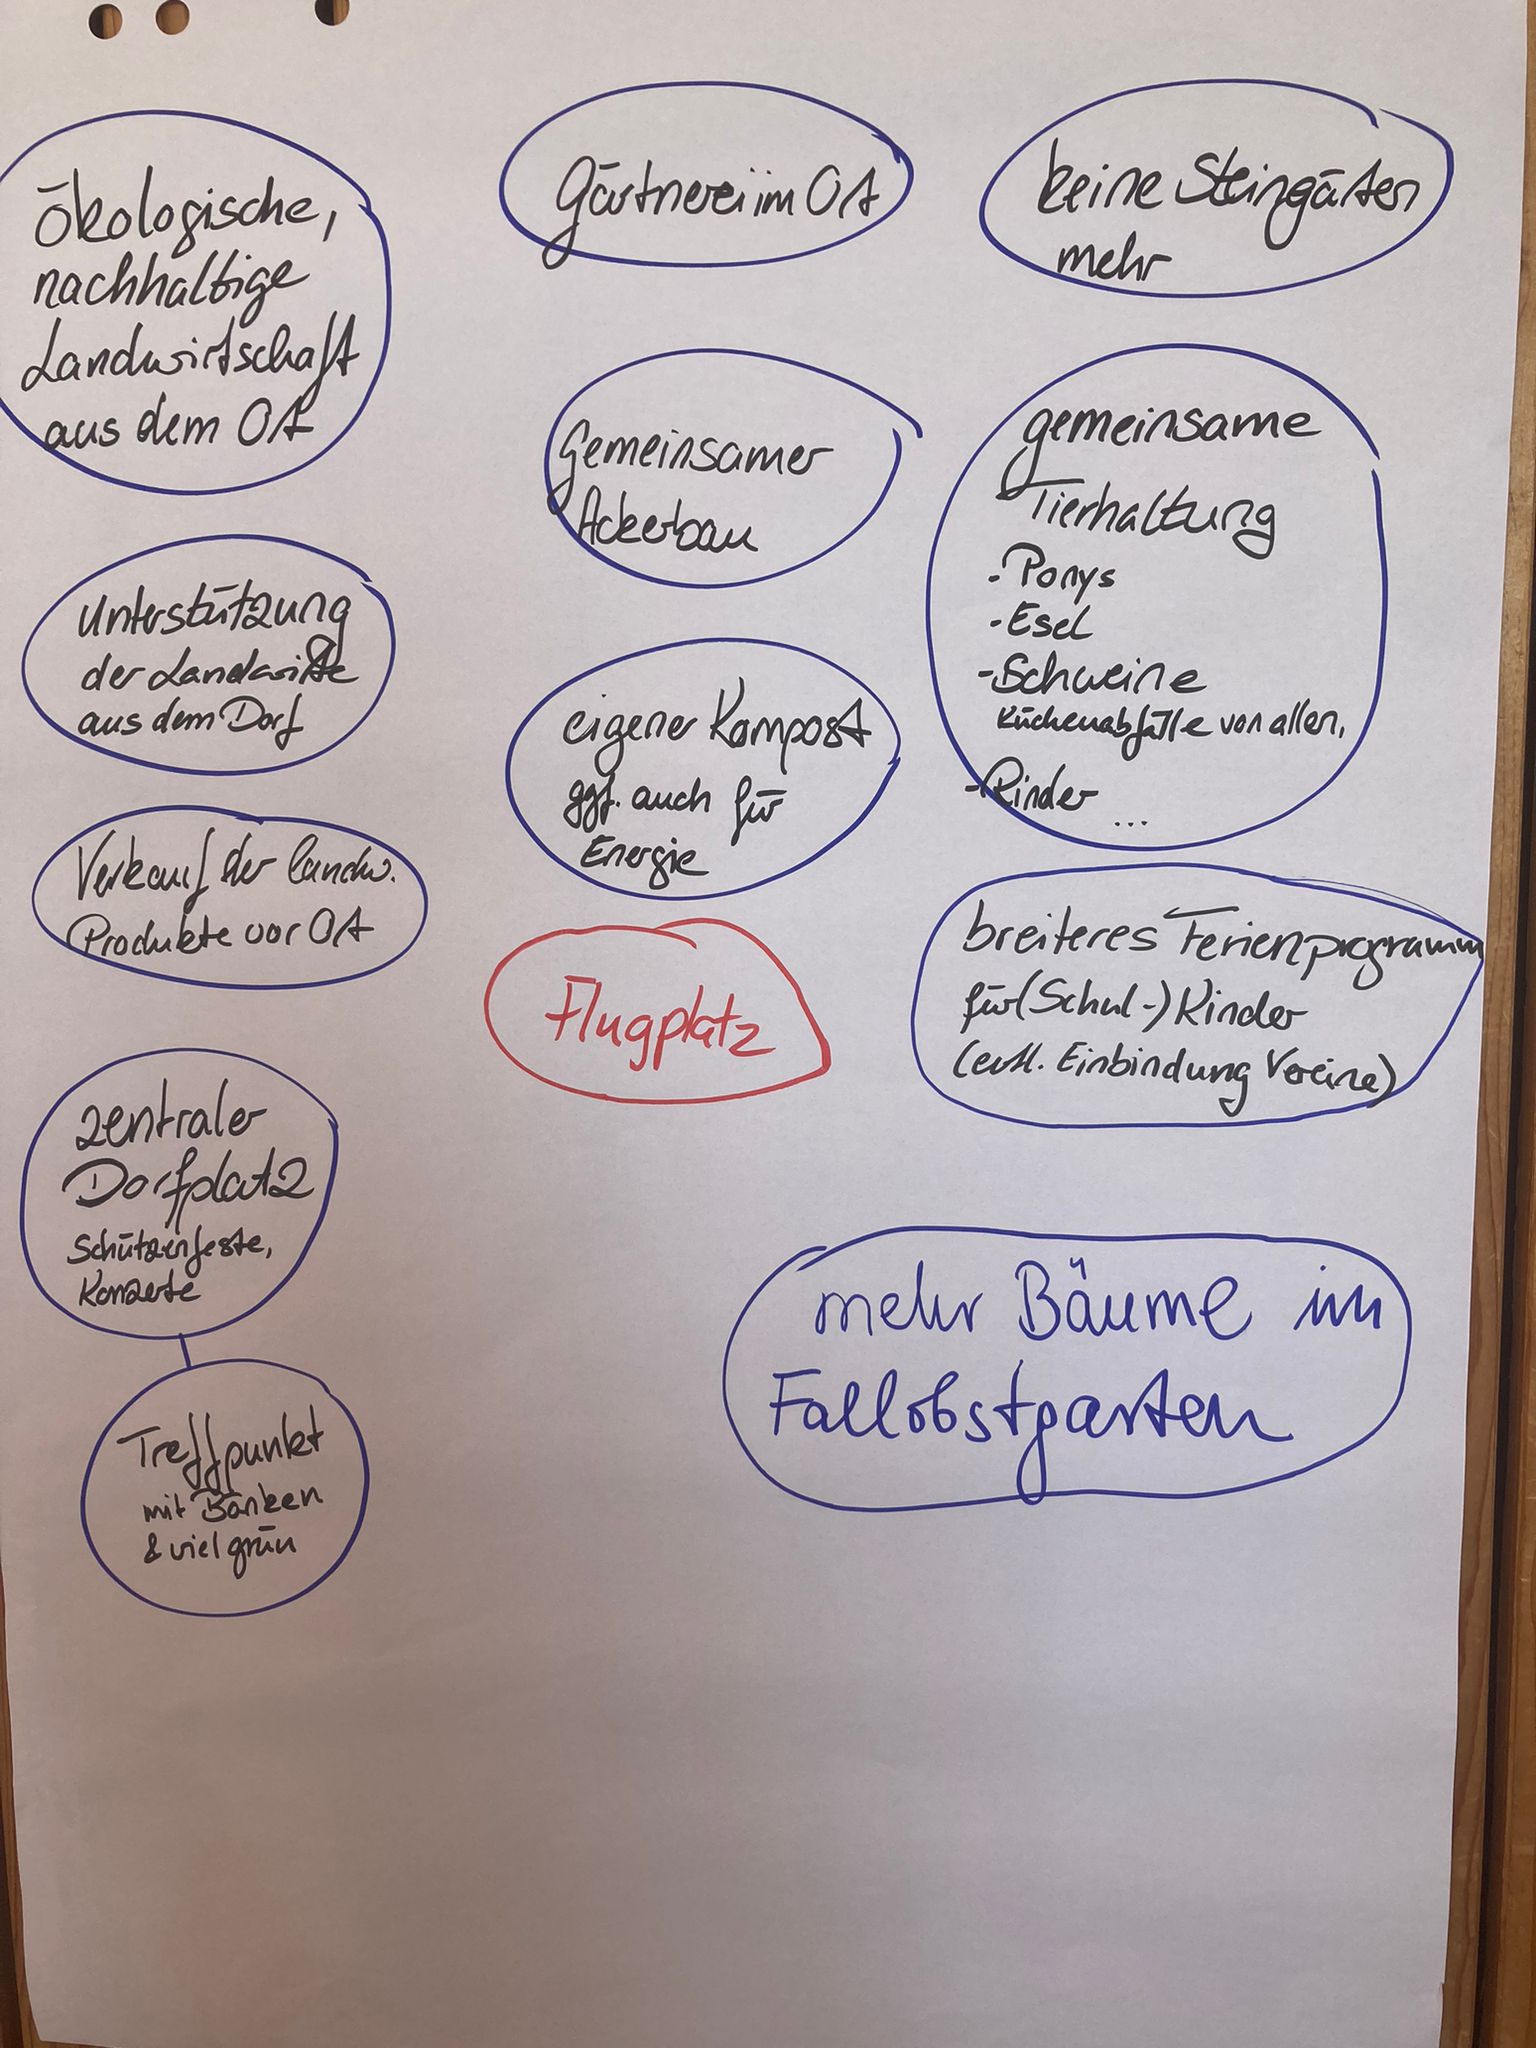 Ökologische,
nachhaltige
Landwirtschaft
aus dem Ort
Unterstützung
der Landwirte
aus dem Dorf
Verkauf der landw.
Produkte vor Ort
zentraler
Dorfplatz
Schützenfeste,
Konzerte
Treffpunkt
mit Bänken
& viel grün
Gärtnerei im Ort
Gemeinsamer
Ackerbau
eigener Kompost
ggf. auch für
Energie
Flugplatz
keine Steingärten
mehr
gemeinsame
Tierhaltung
- Ponys
- Esel
- Schweine
Küchenabfälle von allen,
- Rinder
...
breiteres Ferienprogramm
für (Schul-) Kinder
(evtl. Einbindung Vereine)
mehr Bäume im
Fallobstgarten